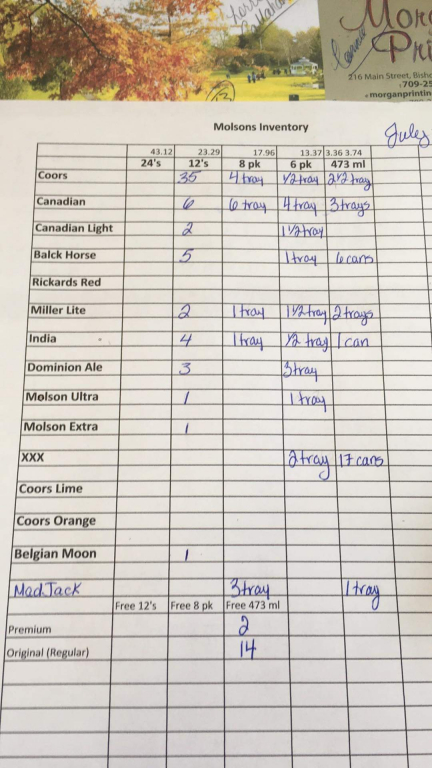 Mor
Pri
216 Main Street, Bish
.709-25
morganprintin
13
Molsons Inventory
July
43.12 23.29 17.96 13.37 3.36 3.74
24's 12's 8 pk 6 pk 473 ml
Coors 35 4 tray 1/2 tray 2 1/2 tray
Canadian 6 6 tray 4 tray 3 trays
Canadian Light 2 1 1/2 tray
Balck Horse 5 1 tray 6 cans
Rickards Red
Miller Lite 2 1 tray 1 1/2 tray 2 trays
India 4 1 tray 1/2 tray 1 can
Dominion Ale 3 3 tray
Molson Ultra 1 1 tray
Molson Extra 1
XXX 2 tray 17 cans
Coors Lime
Coors Orange
Belgian Moon 1
Mad Jack 3 tray 1 tray
Free 12's Free 8 pk Free 473 ml
Premium 2
Original (Regular) 14